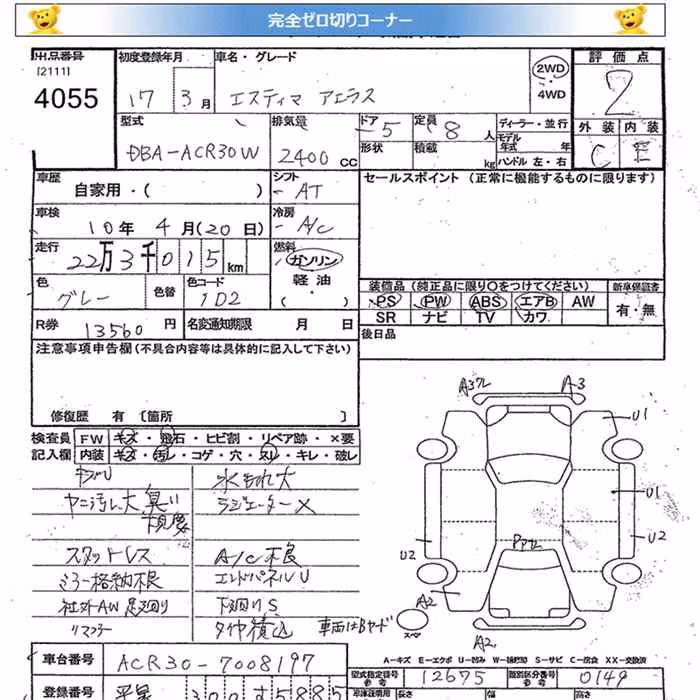 完全ゼロ切りコーナー
出品番号 初度登録年月 車名・グレード 評価点
[2111]
4055 17 3月 エスティマ アエラス 2WD 2
・
4WD
外装 内装
C E
型式 排気量 ドア 5 定員 8人 ディーラー・並行
DBA-ACR30W 2400 CC 形状 積載 kg モデル年式 年
ハンドル 左・右
車歴 シフト セールスポイント (正常に機能するものに限ります)
自家用・( ) AT
車検 冷房
10年 4月(20日) A/C
走行 燃料
22万3千015km ガソリン
軽油
・( )
色 色替 色コード
グレー 1D2
装備品(純正品に限り○をつけてください) 新車保証書
PS PW ABS エアB AW 有・無
SR ナビ TV カワ
R券 13560円 名変通知期限 月 日 後日品
注意事項申告欄(不具合内容等は具体的に記入して下さい)
修復歴 有 [箇所 ]
検査員 FW キズ・飛石・ヒビ割・リペア跡・×要
記入欄 内装 キズ・汚レ・コゲ・穴・スレ・キレ・破レ
水もれ大
ヤニ汚レ大 臭い ラジエーター×
スタットレス A/C不良
ミラー格納不良 エンドパネルU
社外AW 足廻り 下廻りS
リマフラー タイヤ積込 車両はBヤード
A3 U1
U1
U2 U2
A2
スペア
A2
A-キズ E-エクボ U-凹み W-補修跡 S-サビ C-腐食 XX-交換済
車台番号 ACR30-7008197 型式指定番号 参考 12675 類別区分番号 参考 0149
登録番号 300 5885 長さ 幅 高さ